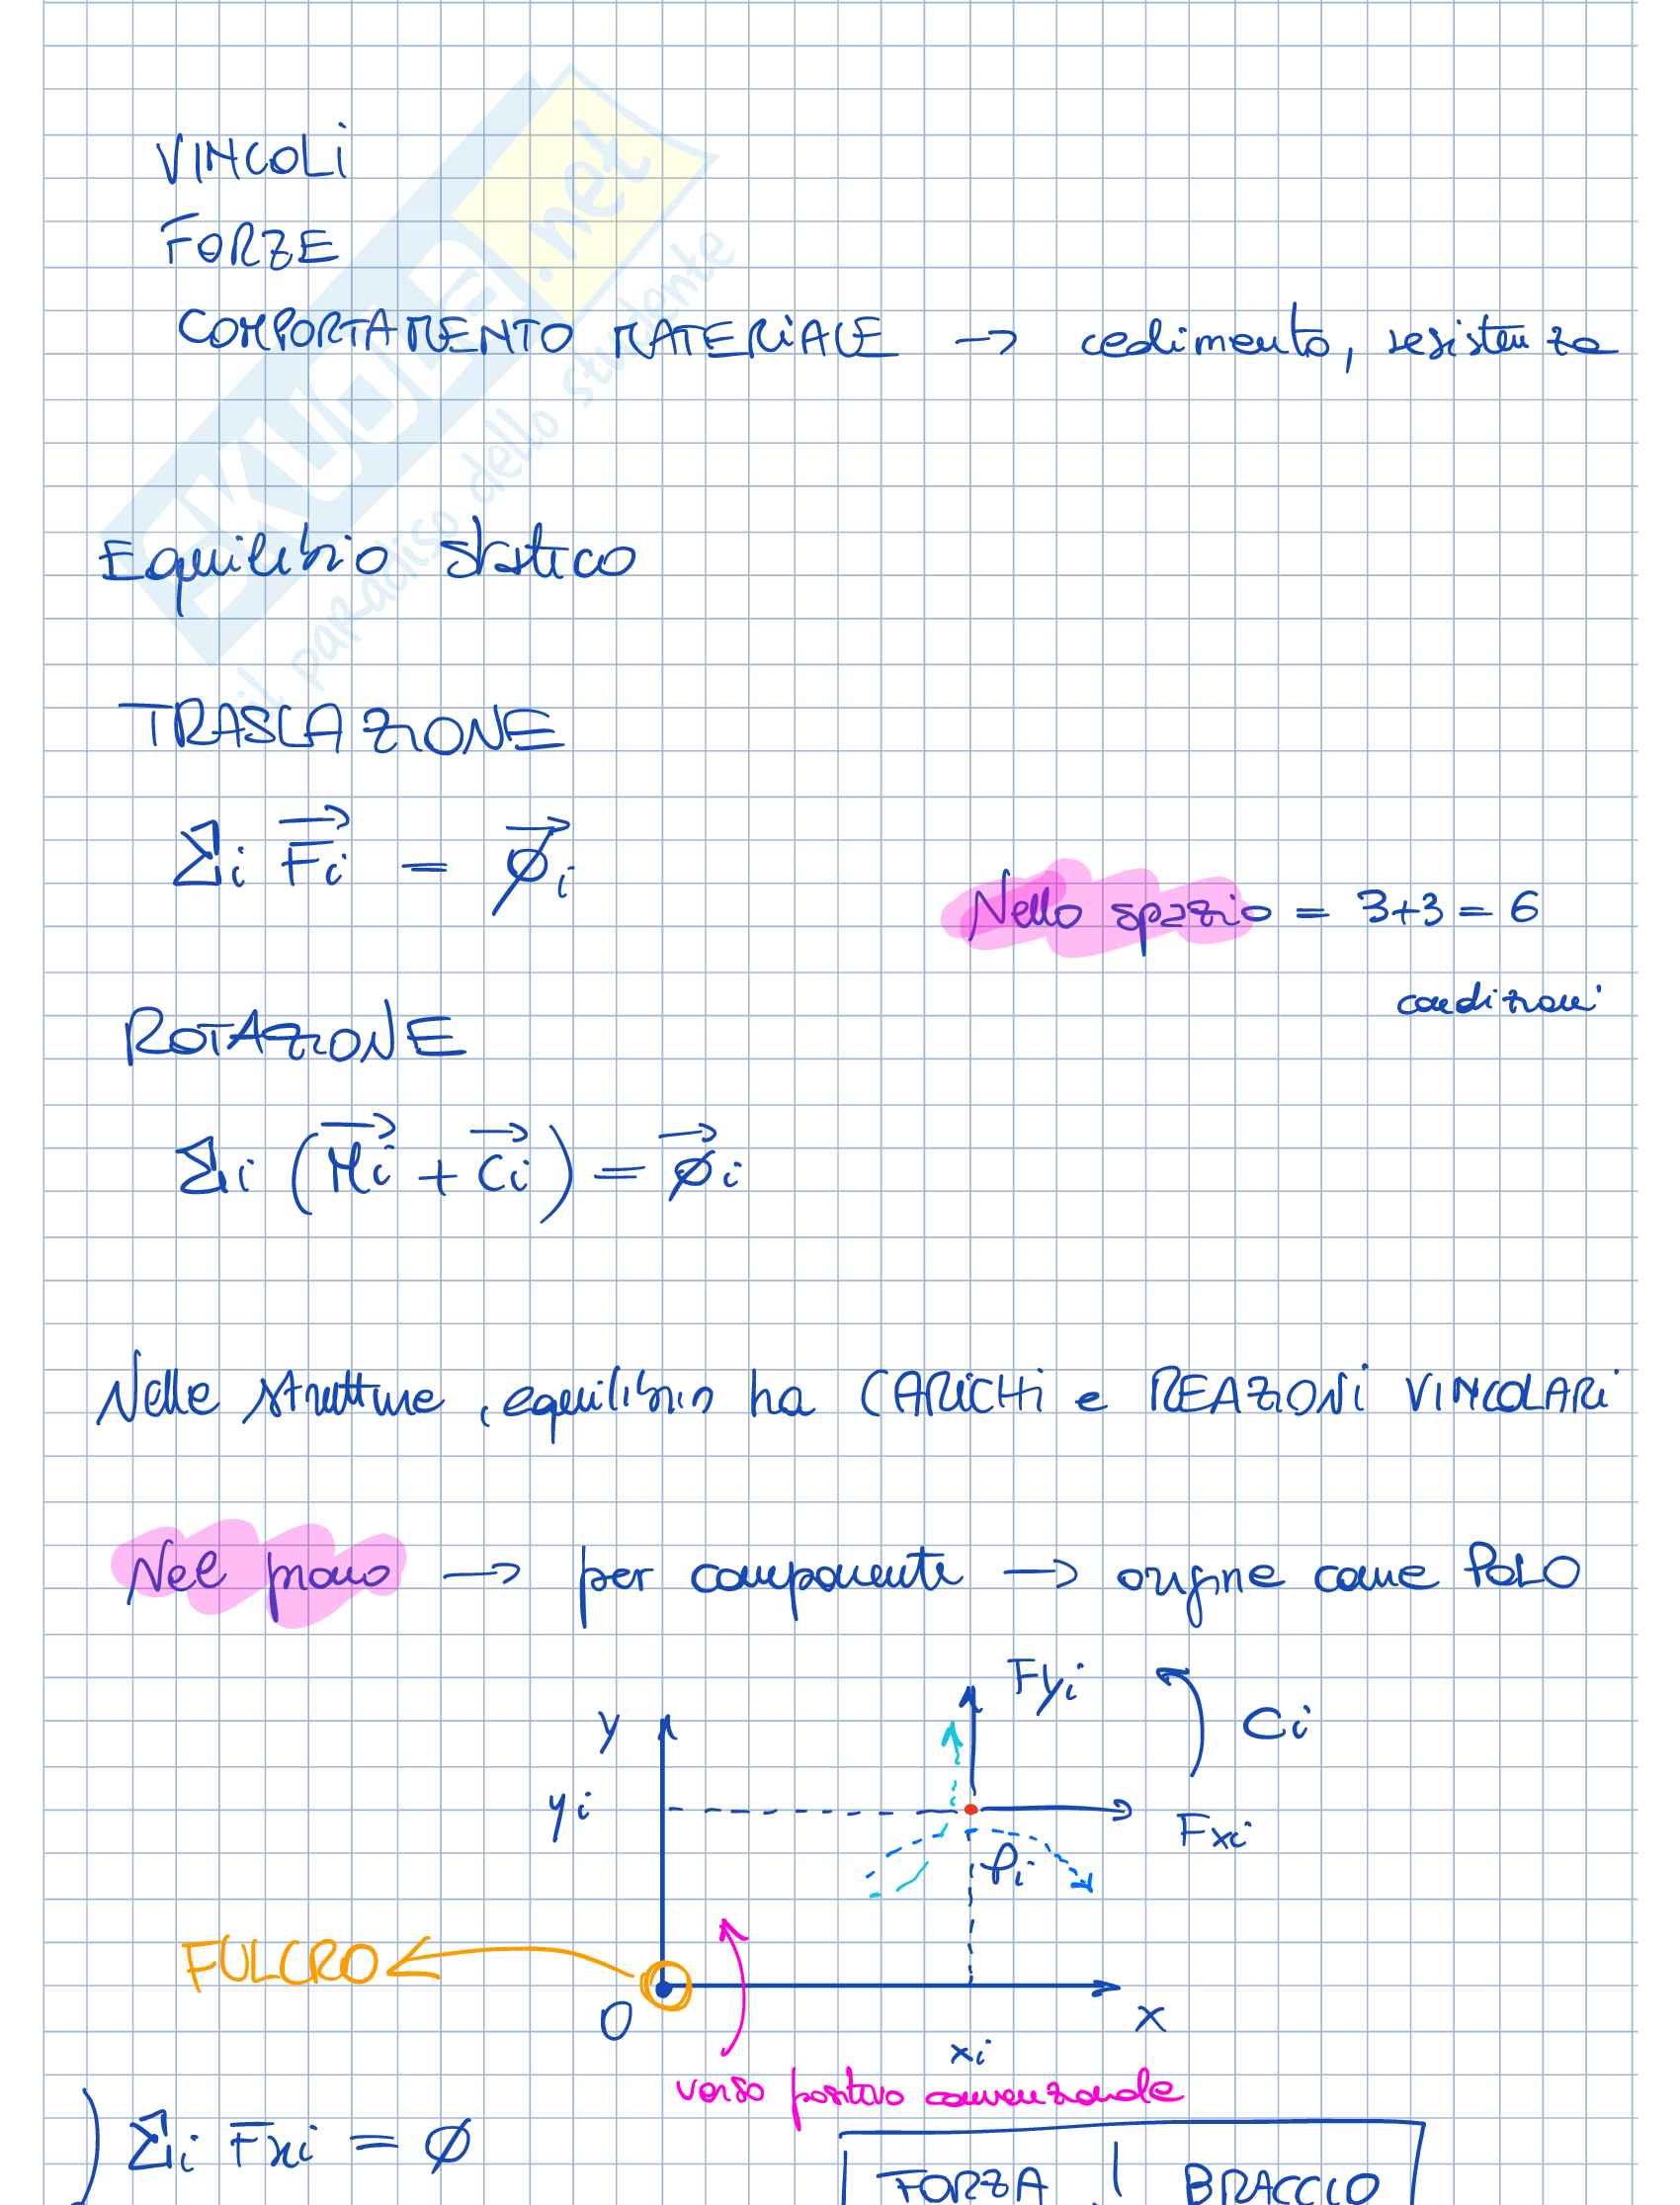 VINCOLI
FORZE
COMPORTAMENTO MATERIALE → cedimento, resistenza
SKUOLA.net
il paradiso dello studente
Equilibrio statico
TRASLAZIONE
Σi Fi = ∅i
Nello spazio = 3+3 = 6
condizioni
ROTAZIONE
Σi (Mi + Ci) = ∅i
Nelle strutture, equilibrio ha CARICHI e REAZIONI VINCOLARI
Nel piano → per componenti → origine come POLO
Fyi
y
Ci
yi
Fxi
Pi
FULCRO
O
x
xi
verso positivo convenzionale
Σi Fxi = ∅
FORZA | BRACCIO